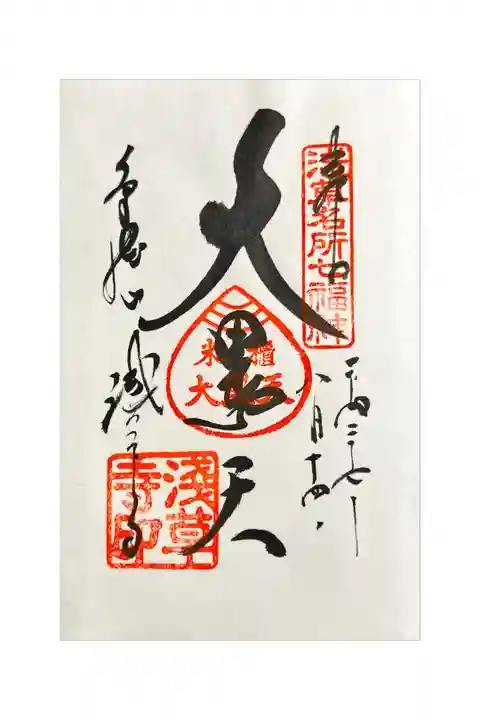 奉拝
浅草名所七福神
平成二十七年
八月十四日
大黒天
米櫃
大黒天
金龍山
浅草寺
浅草
寺印